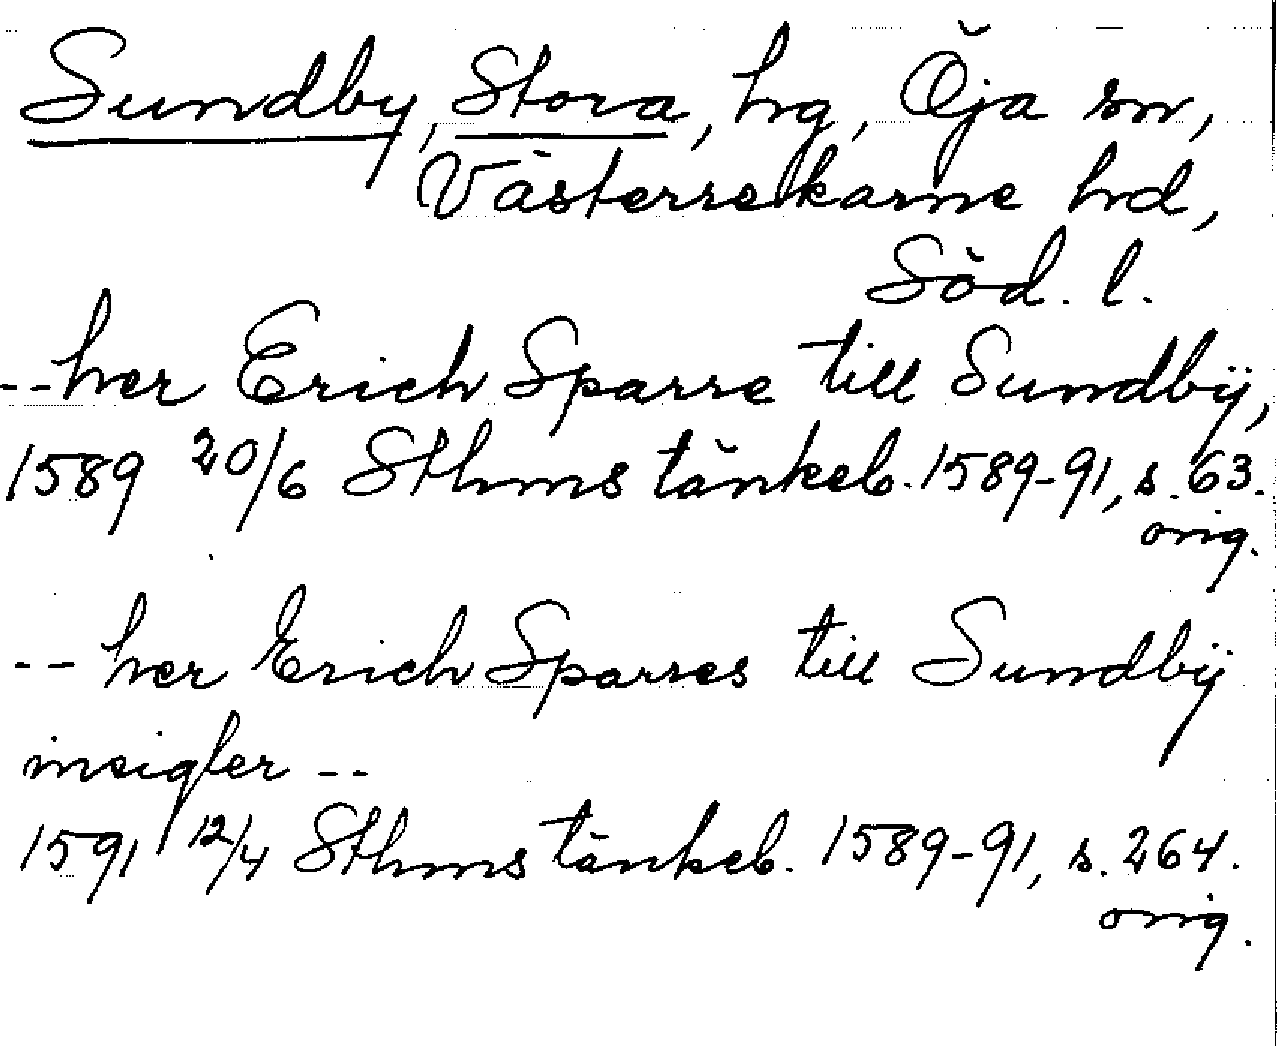 Sundby, Stora, hg, Öja sn,
Västerrekarne hd,
Söd. l.
-- her Erich Sparre till Sundbÿ,
1589 20/6 Sthms tänkeb. 1589-91, s. 63.
orig.
-- her Erich Sparres till Sundbÿ
insigler --
1591 12/4 Sthms tänkeb. 1589-91, s. 264.
orig.